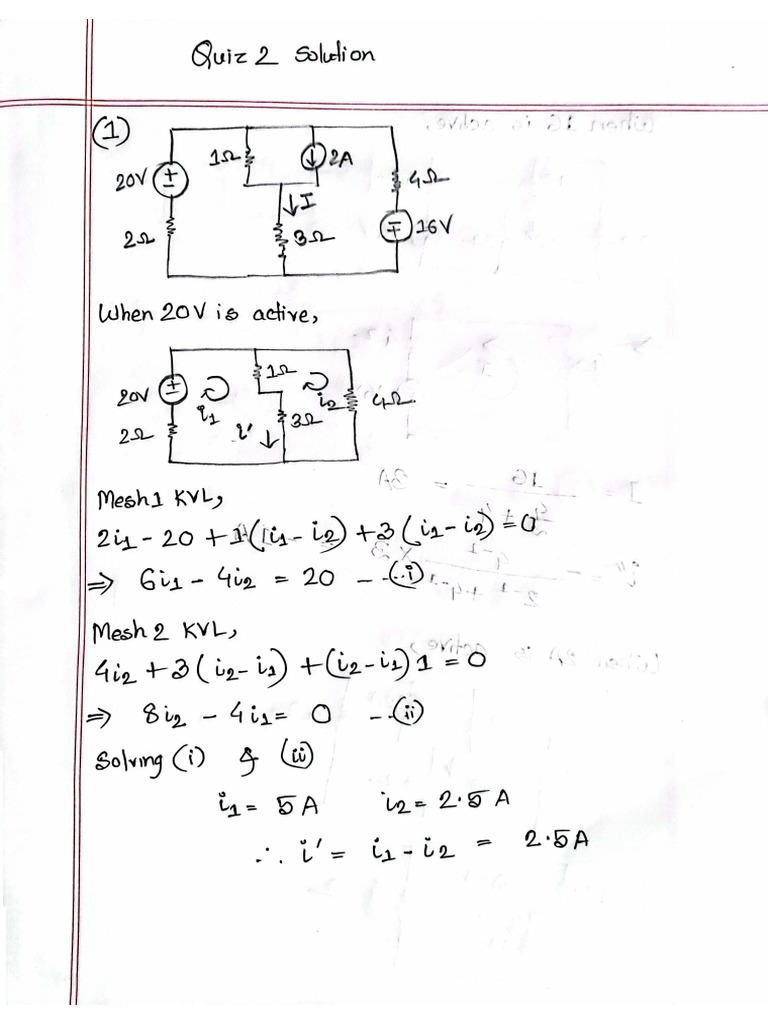 Quiz 2 Solution
(1)
1Ω
2A
20V
4Ω
I
2Ω
3Ω
16V
When 20V is active,
1Ω
20V
i1
i2
4Ω
2Ω
i'
3Ω
Mesh 1 KVL,
2i1 - 20 + 1(i1 - i2) + 3(i1 - i2) = 0
⇒ 6i1 - 4i2 = 20 --(i)
Mesh 2 KVL,
4i2 + 3(i2 - i1) + (i2 - i1) 1 = 0
⇒ 8i2 - 4i1 = 0 --(ii)
Solving (i) & (ii)
i1 = 5A i2 = 2.5A
∴ i' = i1 - i2 = 2.5A